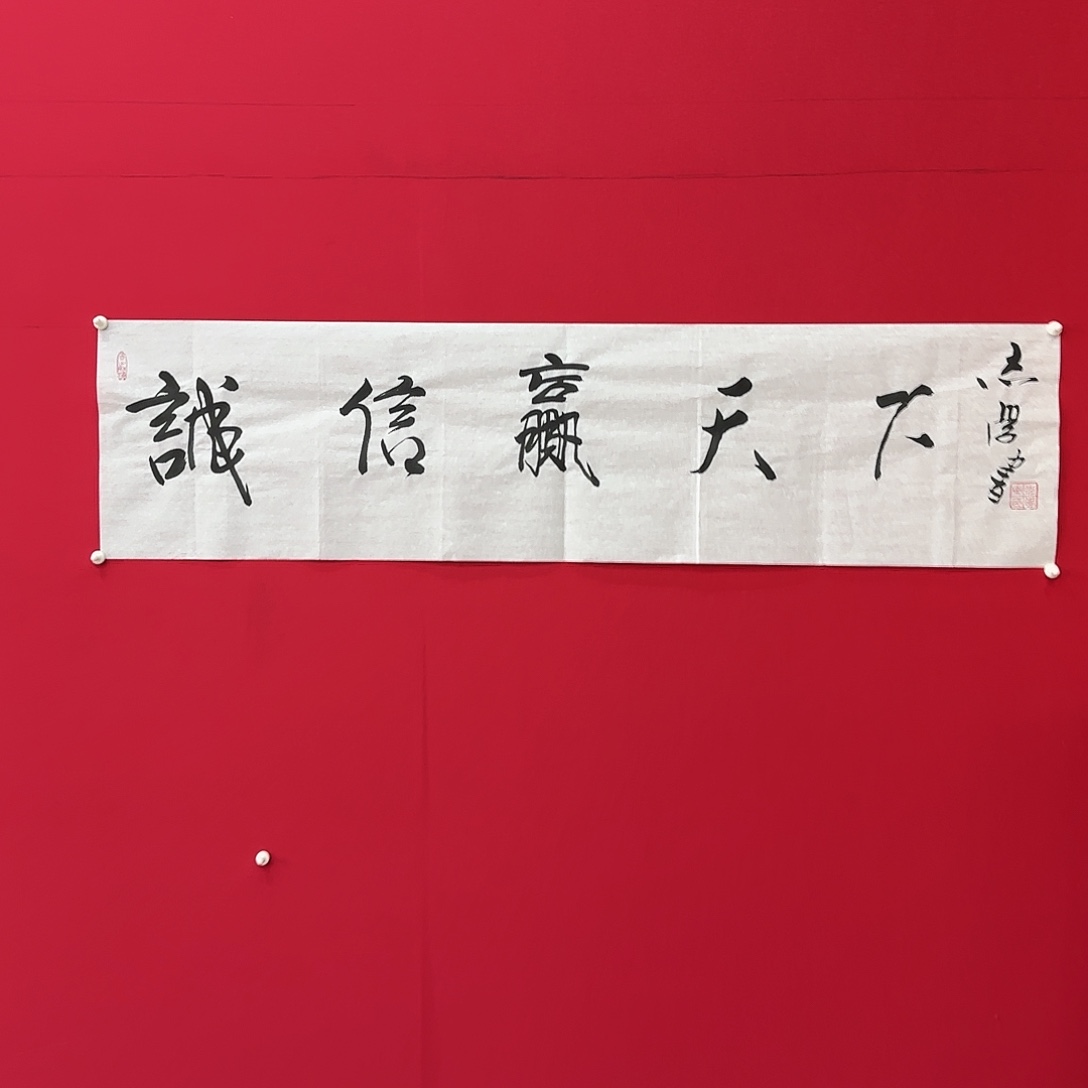 誠信贏天下
志厚書